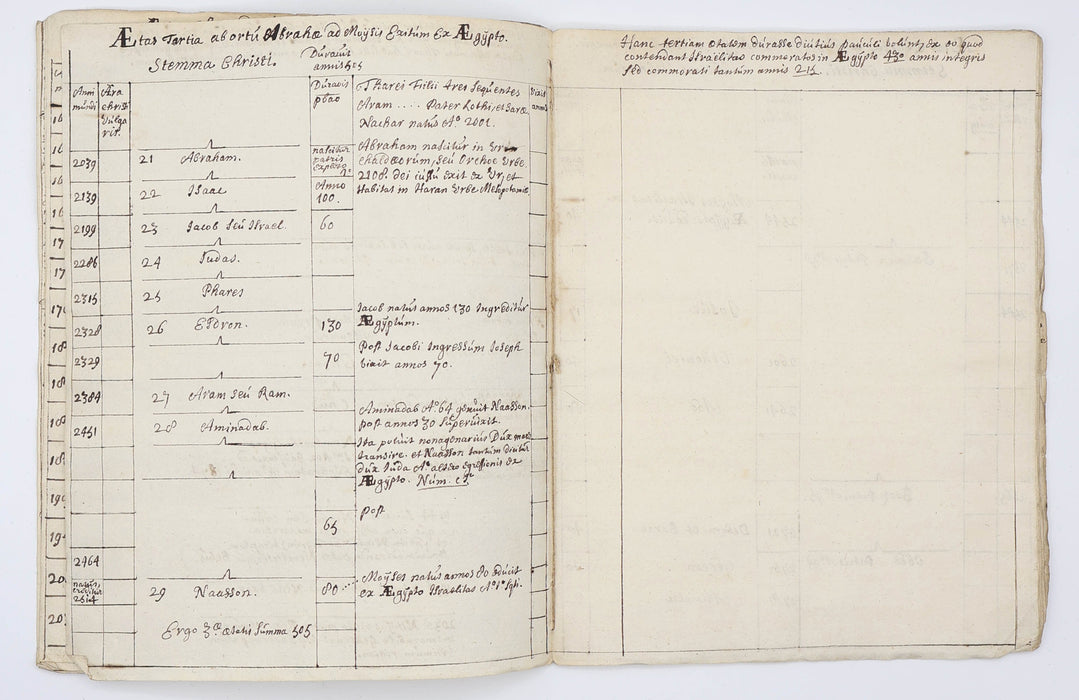 Ætas Tertia ab ortú Abrahæ ad Moÿsis Exitúm Ex Ægÿpto.
Stemma Christi.
Dúravit
annis 505
Anni
múndi
Æra
christi
Vúlga
ris.
Dúratis
Tharei Filii tres seqúentes
Aram .... Pater Lothi, et Saræ
Nachor natús Aº 2001.
annos
2039
21 Abraham.
nascitúr
patris
Abraham nascitúr in Vrbe
chaldæorúm, seú Orchoe Vrbe.
2108. dei iússú exit ex Vr, et
Habitat in Haran Vrbe Mesopotamiæ
2139
22 Isaac
Anno
100.
2199
23 Jacob seú Israel.
60
2286
24 Judas.
2315
25 Phares
Jacob natús annos 130 Ingreditúr
Ægÿptum.
2328
26 Esdron.
130
2329
70
Post Jacobi Ingressúm Joseph
vixit annos 70.
2384
27 Aram seú Ram.
2451
28 Aminadab.
Aminadab Aº 64 genúit Naasson.
post annos 30 súpervixit.
Ita potúit nonagenariús Dúx
transire. et Naasson tantúm dicitúr
dúx Júda Aº altero egressionis ex
Ægÿpto. Núm.
post
65
2464
2514
29 Naasson.
80
Moÿses natús annos 80 edúcit
ex Ægÿpto Israelitas Aº 1º
Ergo 3ª ætatis súmma 505
Hanc tertiam ætatem dúrasse diútiús paúcúli volúnt, ex eo qúod
contendant Israelitas commoratos in Ægÿpto 430 annis integris
sed commorati tantúm annis 215.